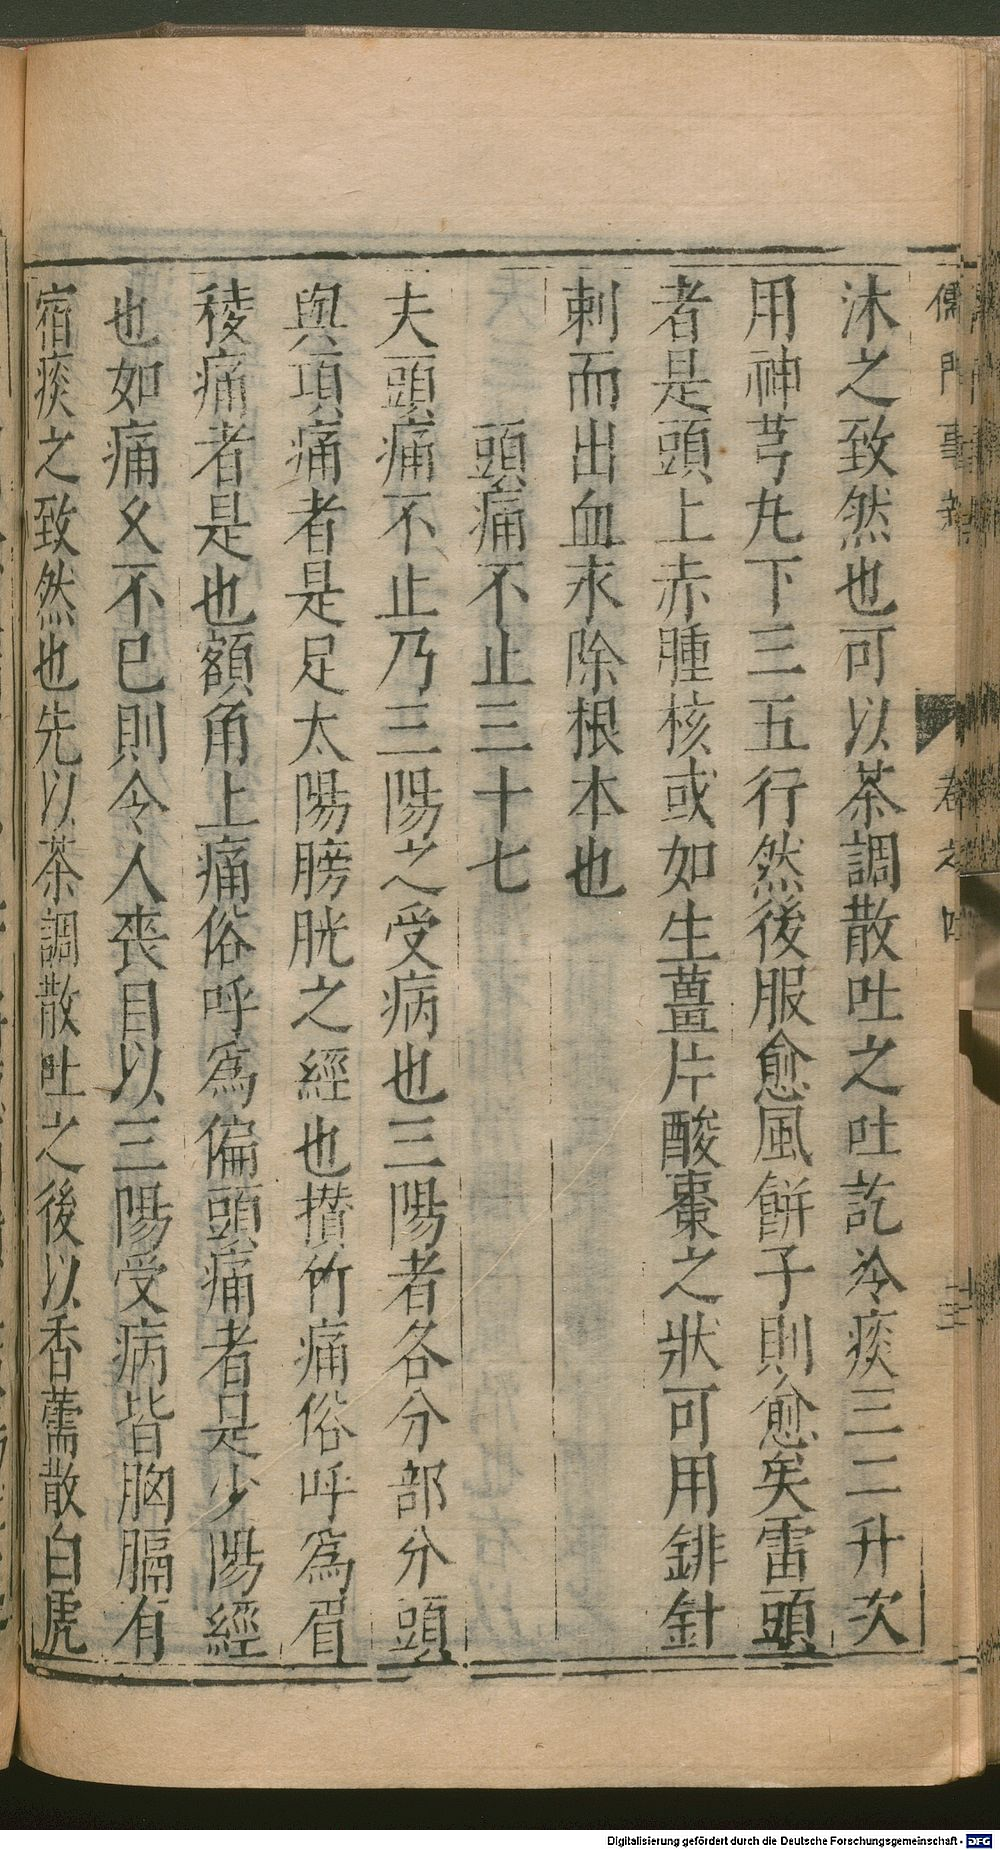 儒門事親 卷之四 十三
沐之致然也可以茶調散吐之吐訖冷痰三二升次
用神芎丸下三五行然後服愈風餅子則愈矣雷頭
者是頭上赤腫核或如生薑片酸棗之狀可用鍼針
刺而出血永除根本也
頭痛不止三十七
夫頭痛不止乃三陽之受病也三陽者各分部分頭
與項痛者是足太陽膀胱之經也攅竹痛俗呼爲眉
稜痛者是也額角上痛俗呼爲偏頭痛者是少陽經
也如痛乆不已則令人喪目以三陽受病皆胸膈有
宿痰之致然也先以茶調散吐之後以香薷散白虎
Digitalisierung gefördert durch die Deutsche Forschungsgemeinschaft - DFG